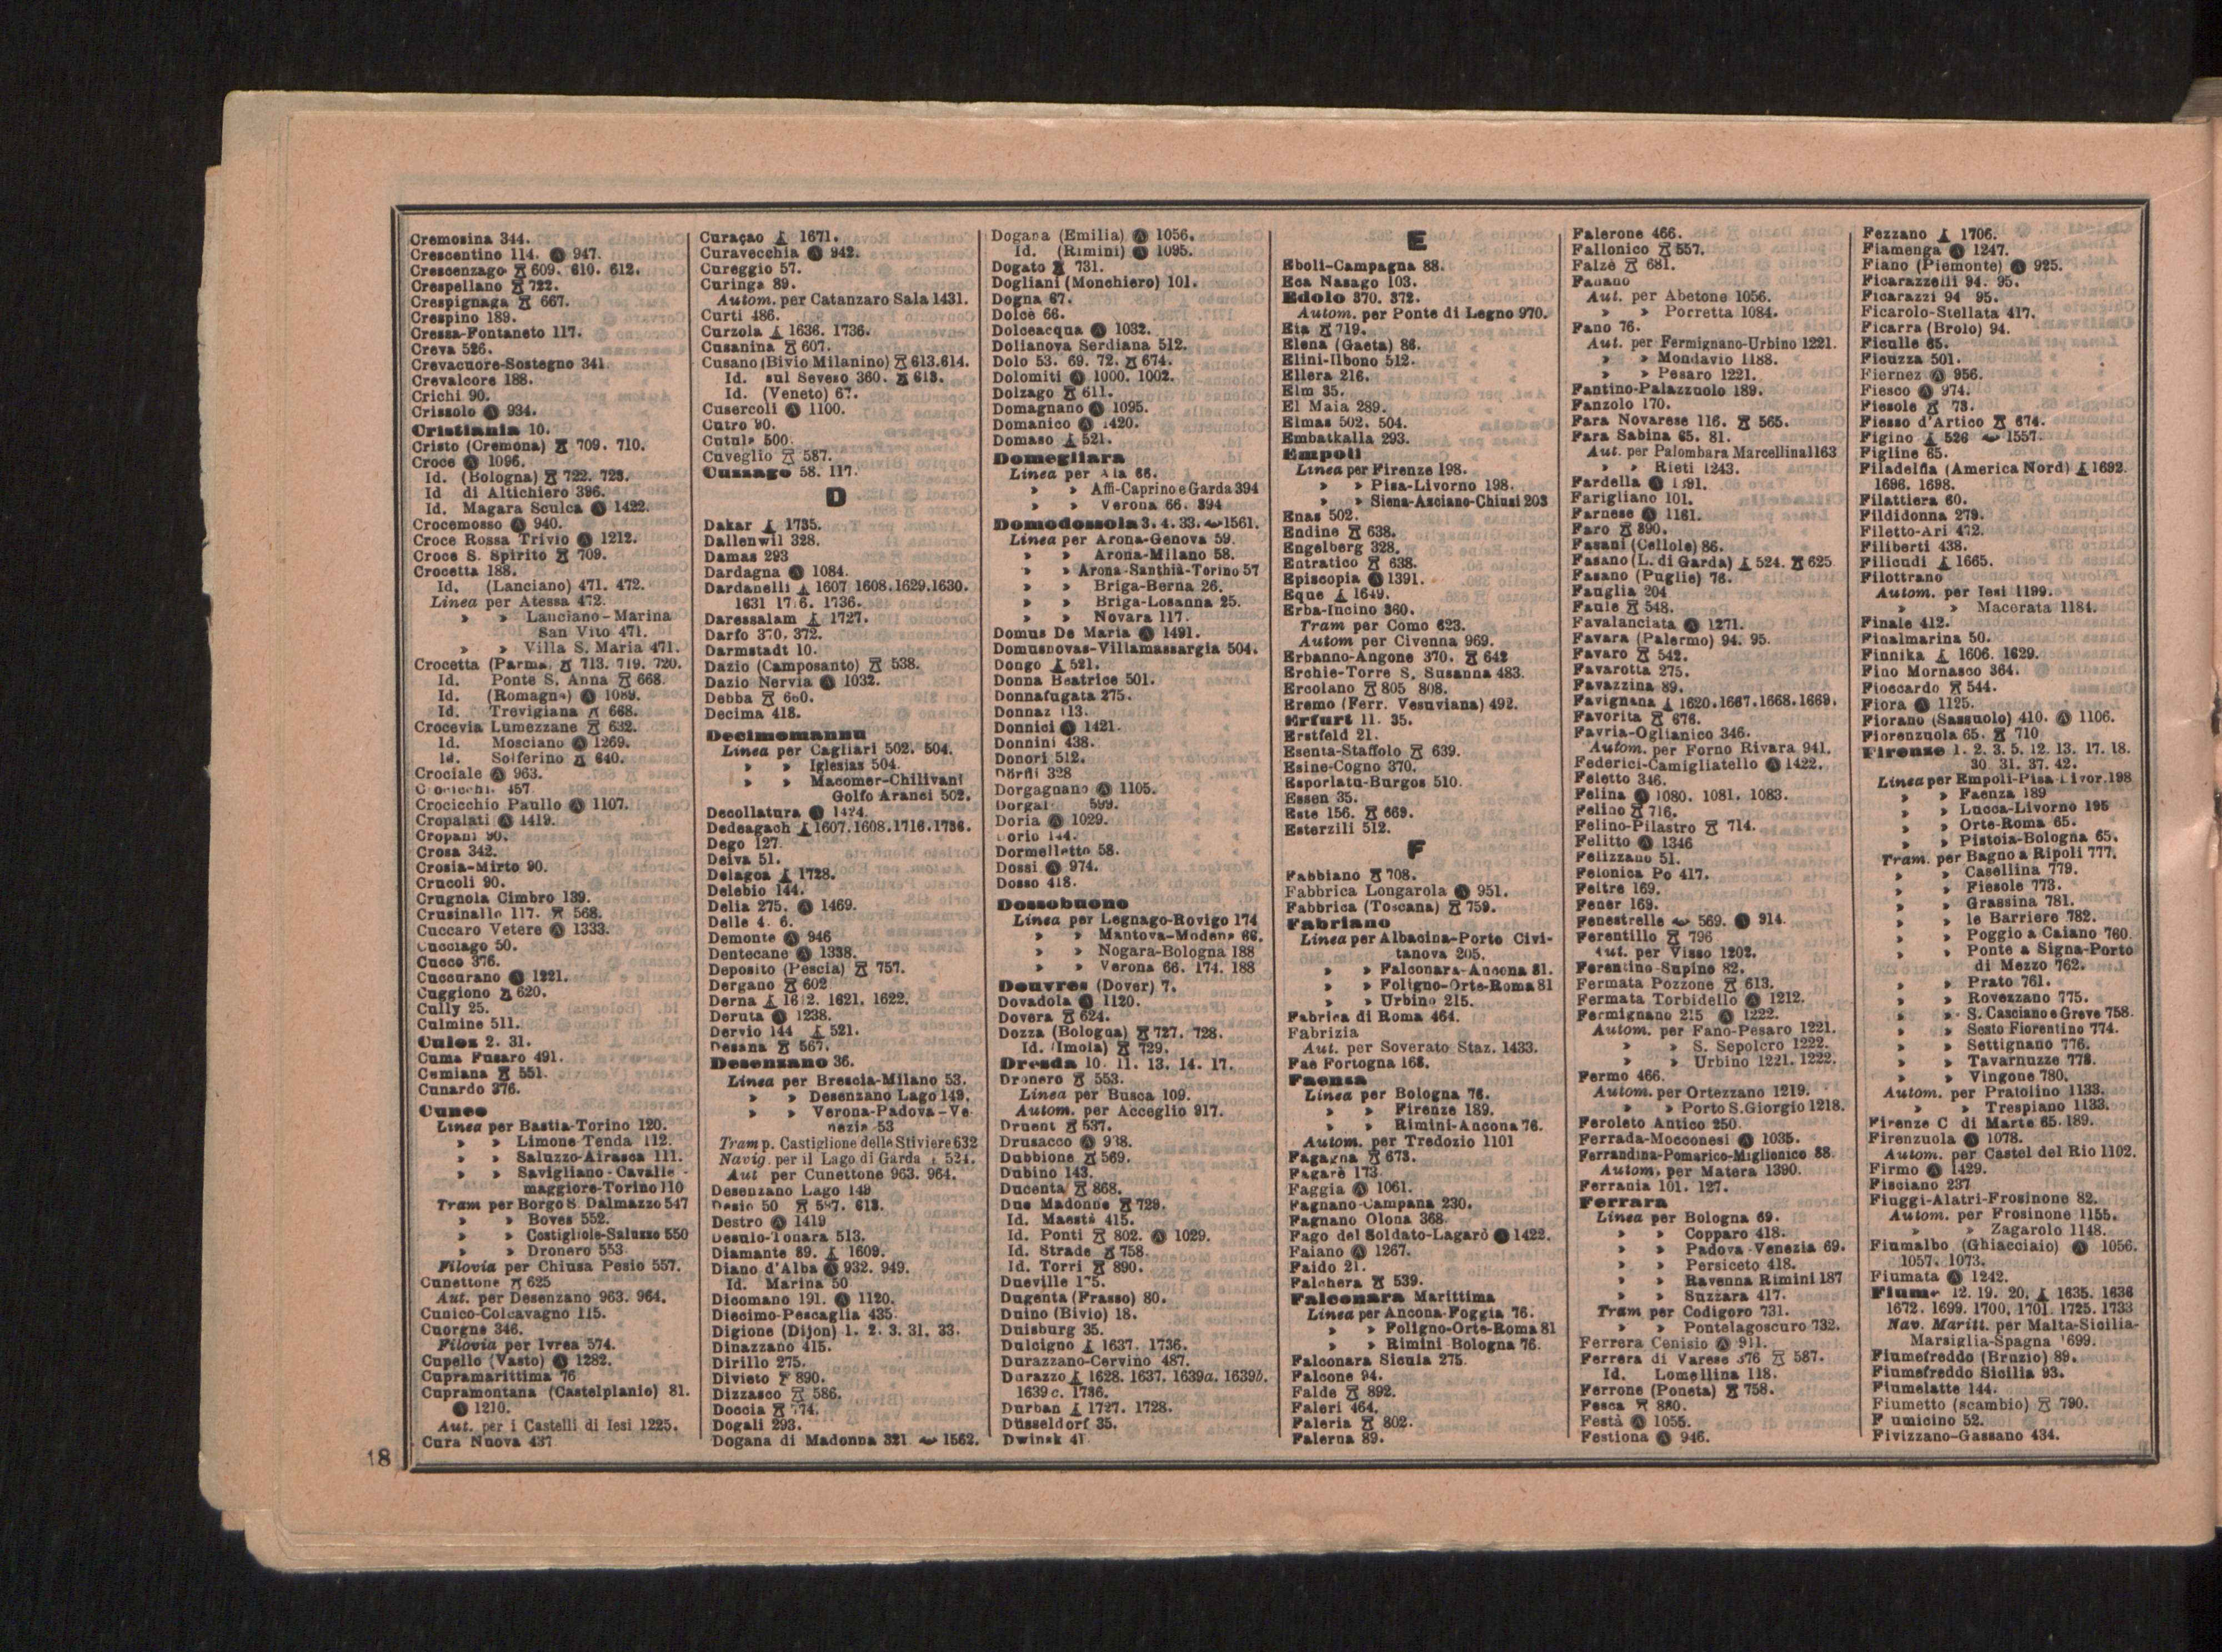 Cremosina 344.
Crescentino 114. Ⓐ 947.
Crescenzago 609. 610. 612.
Crespellano 722.
Crespignaga 667.
Crespino 189.
Cressa-Fontaneto 117.
Creva 526.
Crevacuore-Sostegno 341
Crevalcore 188.
Crichi 90.
Crissolo Ⓐ 934.
Cristiania 10.
Cristo (Cremona) 709. 710.
Croce Ⓐ 1096.
Id. (Bologna) 722. 723.
Id di Altichiero 396.
Id. Magara Sculca Ⓐ 1422.
Crocemosso Ⓐ 940.
Croce Rossa Trivio Ⓐ 1212.
Croce S. Spirito 709.
Crocetta 188.
Id. (Lanciano) 471. 472.
Linea per Atessa 472.
» » Lanciano-Marina
San Vito 471.
» » Villa S. Maria 471.
Crocetta (Parma. 713. 719. 720.
Id. Ponte S. Anna 668.
Id. (Romagna) Ⓐ 1089.
Id. Trevigiana 668.
Crocevia Lumezzane 632.
Id. Mosciano Ⓐ 1269.
Id. Solferino 640.
Crociale Ⓐ 963.
457
Crocicchio Paullo Ⓐ 1107.
Cropalati Ⓐ 1419.
Cropani 90.
Crosa 342.
Crosia-Mirto 90.
Crucoli 90.
Crugnola Cimbro 139.
Crusinallo 117. 568.
Cuccaro Vetere Ⓐ 1333.
Cucciago 50.
Cucco 376.
Cuccurano Ⓐ 1221.
Cuggiono 620.
Cully 25.
Culmine 511.
Culoz 2. 31.
Cuma Fusaro 491.
Cumiana 551.
Cunardo 376.
Cuneo
Linea per Bastia-Torino 120.
» » Limone-Tenda 112.
» » Saluzzo-Airasca 111.
» » Savigliano-Cavalle-
maggiore-Torino 110
Tram per Borgo S. Dalmazzo 547
» » Boves 552.
» » Costigliole-Saluzzo 550
» » Dronero 553
Filovia per Chiusa Pesio 557.
Cunettone 625
Aut. per Desenzano 963. 964.
Cunico-Colcavagno 115.
Cuorgne 346.
Filovia per Ivrea 574.
Cupello (Vasto) Ⓐ 1282.
Cupramarittima 76
Cupramontana (Castelplanio) 81.
Ⓐ 1210.
Aut. per i Castelli di Iesi 1225.
Cura Nuova 437
18
Curaçao 1671.
Curavecchia Ⓐ 942.
Cureggio 57.
Curinga 89.
Autom. per Catanzaro Sala 1431.
Curti 486.
Curzola 1636. 1736.
Cusanina 607.
Cusano (Bivio Milanino) 613.614.
Id. sul Seveso 360. 613.
Id. (Veneto) 67.
Cusercoli Ⓐ 1100.
Cutro 90.
Cutula 500.
Cuveglio 587.
Cuzzago 58. 117.
D
Dakar 1735.
Dallenwil 328.
Damas 293
Dardagna Ⓐ 1084.
Dardanelli 1607 1608.1629.1630.
1631 1736.
Daressalam 1727.
Darfo 370. 372.
Darmstadt 10.
Dazio (Camposanto) 538.
Dazio Nervia Ⓐ 1032.
Debba 660.
Decima 418.
Decimomannu
Linea per Cagliari 502. 504.
» » Iglesias 504.
» » Macomer-Chilivani
Golfo Aranci 502.
Decollatura Ⓐ 1424.
Dedeagach 1607.1608.1716.1736.
Dego 127
Deiva 51.
Delagoa 1728.
Delebio 144.
Delia 275. Ⓐ 1469.
Delle 4. 6.
Demonte Ⓐ 946
Dentecane Ⓐ 1338.
Deposito (Pescia) 757.
Dergano 602
Derna 1612. 1621. 1622.
Deruta Ⓐ 1238.
Dervio 144 521.
Desana 567.
Desenzano 36.
Linea per Brescia-Milano 53.
» » Desenzano Lago 149.
» » Verona-Padova-Ve-
nezia 53
Tram p. Castiglione delle Stiviere 632
Navig. per il Lago di Garda 524.
Aut per Cunettone 963. 964.
Desenzano Lago 149
Desio 50 587. 613.
Destro Ⓐ 1419
Desulo-Tonara 513.
Diamante 89. 1609.
Diano d'Alba Ⓐ 932. 949.
Id. Marina 50
Dicomano 191. Ⓐ 1120.
Diecimo-Pescaglia 435.
Digione (Dijon) 1. 2. 3. 31. 33.
Dinazzano 415.
Dirillo 275.
Divieto 890.
Dizzasco 586.
Doccia 774.
Dogali 293.
Dogana di Madonna 321. 1562.
Dogana (Emilia) Ⓐ 1056.
Id. (Rimini) Ⓐ 1095.
Dogato 731.
Dogliani (Monchiero) 101.
Dogna 67.
Dolcè 66.
Dolceacqua Ⓐ 1032.
Dolianova Serdiana 512.
Dolo 53. 69. 72. 674.
Dolomiti Ⓐ 1000. 1002.
Dolzago 611.
Domagnano Ⓐ 1095.
Domanico Ⓐ 1420.
Domaso 521.
Domegliara
Linea per Ala 66.
» » Affi-Caprino e Garda 394
» » Verona 66. 394
Domodossola 3. 4. 33. 1561.
Linea per Arona-Genova 59.
» » Arona-Milano 58.
» » Arona-Santhià-Torino 57
» » Briga-Berna 26.
» » Briga-Losanna 25.
» » Novara 117.
Domus De Maria Ⓐ 1491.
Domusnovas-Villamassargia 504.
Dongo 521.
Donna Beatrice 501.
Donnafugata 275.
Donnaz 113.
Donnici Ⓐ 1421.
Donnini 438.
Donori 512.
Dörfli 328
Dorgagnano Ⓐ 1105.
Dorgali 599.
Doria Ⓐ 1029.
Dorio 144.
Dormelletto 58.
Dossi Ⓐ 974.
Dosso 418.
Dossobuono
Linea per Legnago-Rovigo 174
» » Mantova-Modena 66.
» » Nogara-Bologna 188
» » Verona 66. 174. 188
Douvres (Dover) 7.
Dovadola Ⓐ 1120.
Dovera 624.
Dozza (Bologna) 727. 728.
Id. (Imola) 729.
Dresda 10. 11. 13. 14. 17.
Dronero 553.
Linea per Busca 109.
Autom. per Acceglio 917.
Druent 537.
Drusacco Ⓐ 938.
Dubbione 569.
Dubino 143.
Ducenta 868.
Due Madonne 729.
Id. Maestà 415.
Id. Ponti 802. Ⓐ 1029.
Id. Strade 758.
Id. Torri 890.
Dueville 175.
Dugenta (Frasso) 80.
Duino (Bivio) 18.
Duisburg 35.
Dulcigno 1637. 1736.
Durazzano-Cervino 487.
Durazzo 1628. 1637. 1639a. 1639b.
1639c. 1736.
Durban 1727. 1728.
Düsseldorf 35.
Dwinsk 41
E
Eboli-Campagna 88.
Eca Nasago 103.
Edolo 370. 372.
Autom. per Ponte di Legno 970.
Eia 719.
Elena (Gaeta) 86.
Elini-Ilbono 512.
Ellera 216.
Elm 35.
El Maia 289.
Elmas 502. 504.
Embatkalla 293.
Empoli
Linea per Firenze 198.
» » Pisa-Livorno 198.
» » Siena-Asciano-Chiusi 203
Enas 502.
Endine 638.
Engelberg 328.
Entratico 638.
Episcopia Ⓐ 1391.
Eque 1649.
Erba-Incino 360.
Tram per Como 623.
Autom per Civenna 969.
Erbanno-Angone 370. 642
Erchie-Torre S. Susanna 483.
Ercolano 805 808.
Eremo (Ferr. Vesuviana) 492.
Erfurt 11. 35.
Erstfeld 21.
Esenta-Staffolo 639.
Esine-Cogno 370.
Esporlatu-Burgos 510.
Essen 35.
Este 156. 669.
Esterzili 512.
F
Fabbiano 708.
Fabbrica Longarola Ⓐ 951.
Fabbrica (Toscana) 759.
Fabriano
Linea per Albacina-Porto Civi-
tanova 205.
» » Falconara-Ancona 81.
» » Foligno-Orte-Roma 81
» » Urbino 215.
Fabrica di Roma 464.
Fabrizia
Aut. per Soverato Staz. 1433.
Fae Fortogna 168.
Faenza
Linea per Bologna 76.
» » Firenze 189.
» » Rimini-Ancona 76.
Autom. per Tredozio 1101
Fagagna 673.
Fagarè 173.
Faggia Ⓐ 1061.
Fagnano-Campana 230.
Fagnano Olona 368
Fago del Soldato-Lagarò Ⓐ 1422.
Faiano Ⓐ 1267.
Faido 21.
Falchera 539.
Falconara Marittima
Linea per Ancona-Foggia 76.
» » Foligno-Orte-Roma 81
» » Rimini-Bologna 76.
Falconara Sicula 275.
Falcone 94.
Falde 892.
Faleri 464.
Faleria 802.
Falerna 89.
Falerone 466.
Fallonico 557.
Falzè 681.
Fanano
Aut. per Abetone 1056.
» » Porretta 1084.
Fano 76.
Aut. per Fermignano-Urbino 1221.
» » Mondavio 1188.
» » Pesaro 1221.
Fantino-Palazzuolo 189.
Fanzolo 170.
Fara Novarese 116. 565.
Fara Sabina 65. 81.
Aut. per Palombara Marcellina1163
» » Rieti 1243.
Fardella Ⓐ 1391.
Farigliano 101.
Farnese Ⓐ 1161.
Faro 890.
Fasani (Cellole) 86.
Fasano (L. di Garda) 524. 625
Fasano (Puglie) 76.
Fauglia 204
Faule 548.
Favalanciata Ⓐ 1271.
Favara (Palermo) 94. 95.
Favaro 542.
Favarotta 275.
Favazzina 89.
Favignana 1620.1667.1668.1669.
Favorita 676.
Favria-Oglianico 346.
Autom. per Forno Rivara 941.
Federici-Camigliatello Ⓐ 1422.
Feletto 346.
Felina Ⓐ 1080. 1081. 1083.
Felino 716.
Felino-Pilastro 714.
Felitto Ⓐ 1346
Felizzano 51.
Felonica Po 417.
Feltre 169.
Fener 169.
Fenestrelle 569. Ⓐ 914.
Ferentillo 796
Aut. per Visso 1202.
Ferentino-Supino 82.
Fermata Pozzone 613.
Fermata Torbidello Ⓐ 1212.
Fermignano 215 Ⓐ 1222.
Autom. per Fano-Pesaro 1221.
» » S. Sepolcro 1222.
» » Urbino 1221. 1222.
Fermo 466.
Autom. per Ortezzano 1219.
» » Porto S.Giorgio 1218.
Feroleto Antico 250.
Ferrada-Mocconesi Ⓐ 1035.
Ferrandina-Pomarico-Miglionico 88.
Autom. per Matera 1390.
Ferrania 101. 127.
Ferrara
Linea per Bologna 69.
» » Copparo 418.
» » Padova-Venezia 69.
» » Persiceto 418.
» » Ravenna Rimini 187
» » Suzzara 417.
Tram per Codigoro 731.
» » Pontelagoscuro 732.
Ferrera Cenisio Ⓐ 911.
Ferrera di Varese 376 587.
Id. Lomellina 118.
Ferrone (Poneta) 758.
Fesca 880.
Festà Ⓐ 1055.
Festiona Ⓐ 946.
Fezzano 1706.
Fiamenga Ⓐ 1247.
Fiano (Piemonte) Ⓐ 925.
Ficarazzelli 94. 95.
Ficarazzi 94 95.
Ficarolo-Stellata 417.
Ficarra (Brolo) 94.
Ficulle 65.
Ficuzza 501.
Fiernez Ⓐ 956.
Fiesco Ⓐ 974.
Fiesole 73.
Fiesso d'Artico 674.
Figino 526 1557.
Figline 65.
Filadelfia (America Nord) 1692.
1696. 1698.
Filattiera 60.
Fildidonna 279.
Filetto-Ari 472.
Filiberti 438.
Filicudi 1665.
Filottrano
Autom. per Iesi 1199.
» » Macerata 1184.
Finale 412.
Finalmarina 50.
Finnika 1606. 1629.
Fino Mornasco 364.
Fioccardo 544.
Fiora Ⓐ 1125.
Fiorano (Sassuolo) 410. Ⓐ 1106.
Fiorenzuola 65. 710
Firenze 1. 2. 3. 5. 12. 13. 17. 18.
30. 31. 37. 42.
Linea per Empoli-Pisa-Livor.198
» » Faenza 189
» » Lucca-Livorno 195
» » Orte-Roma 65.
» » Pistoia-Bologna 65.
Tram. per Bagno a Ripoli 777.
» » Casellina 779.
» » Fiesole 773.
» » Grassina 781.
» » le Barriere 782.
» » Poggio a Caiano 760.
» » Ponte a Signa-Porto
di Mezzo 762.
» » Prato 761.
» » Rovezzano 775.
» » S. Casciano e Greve 758.
» » Sesto Fiorentino 774.
» » Settignano 776.
» » Tavarnuzze 778.
» » Vingone 780.
Autom. per Pratolino 1133.
» » Trespiano 1133.
Firenze C di Marte 65.189.
Firenzuola Ⓐ 1078.
Autom. per Castel del Rio 1102.
Firmo Ⓐ 1429.
Fisciano 237
Fiuggi-Alatri-Frosinone 82.
Autom. per Frosinone 1155.
» Zagarolo 1148.
Fiumalbo (Ghiacciaio) Ⓐ 1056.
1057. 1073.
Fiumata Ⓐ 1242.
Fiume 12. 19. 20. 1635. 1636
1672. 1699. 1700. 1701. 1725. 1733
Nav. Maritt. per Malta-Sicilia-
Marsiglia-Spagna 1699.
Fiumefreddo (Bruzio) 89.
Fiumefreddo Sicilia 93.
Fiumelatte 144.
Fiumetto (scambio) 790.
Fiumicino 52.
Fivizzano-Gassano 434.